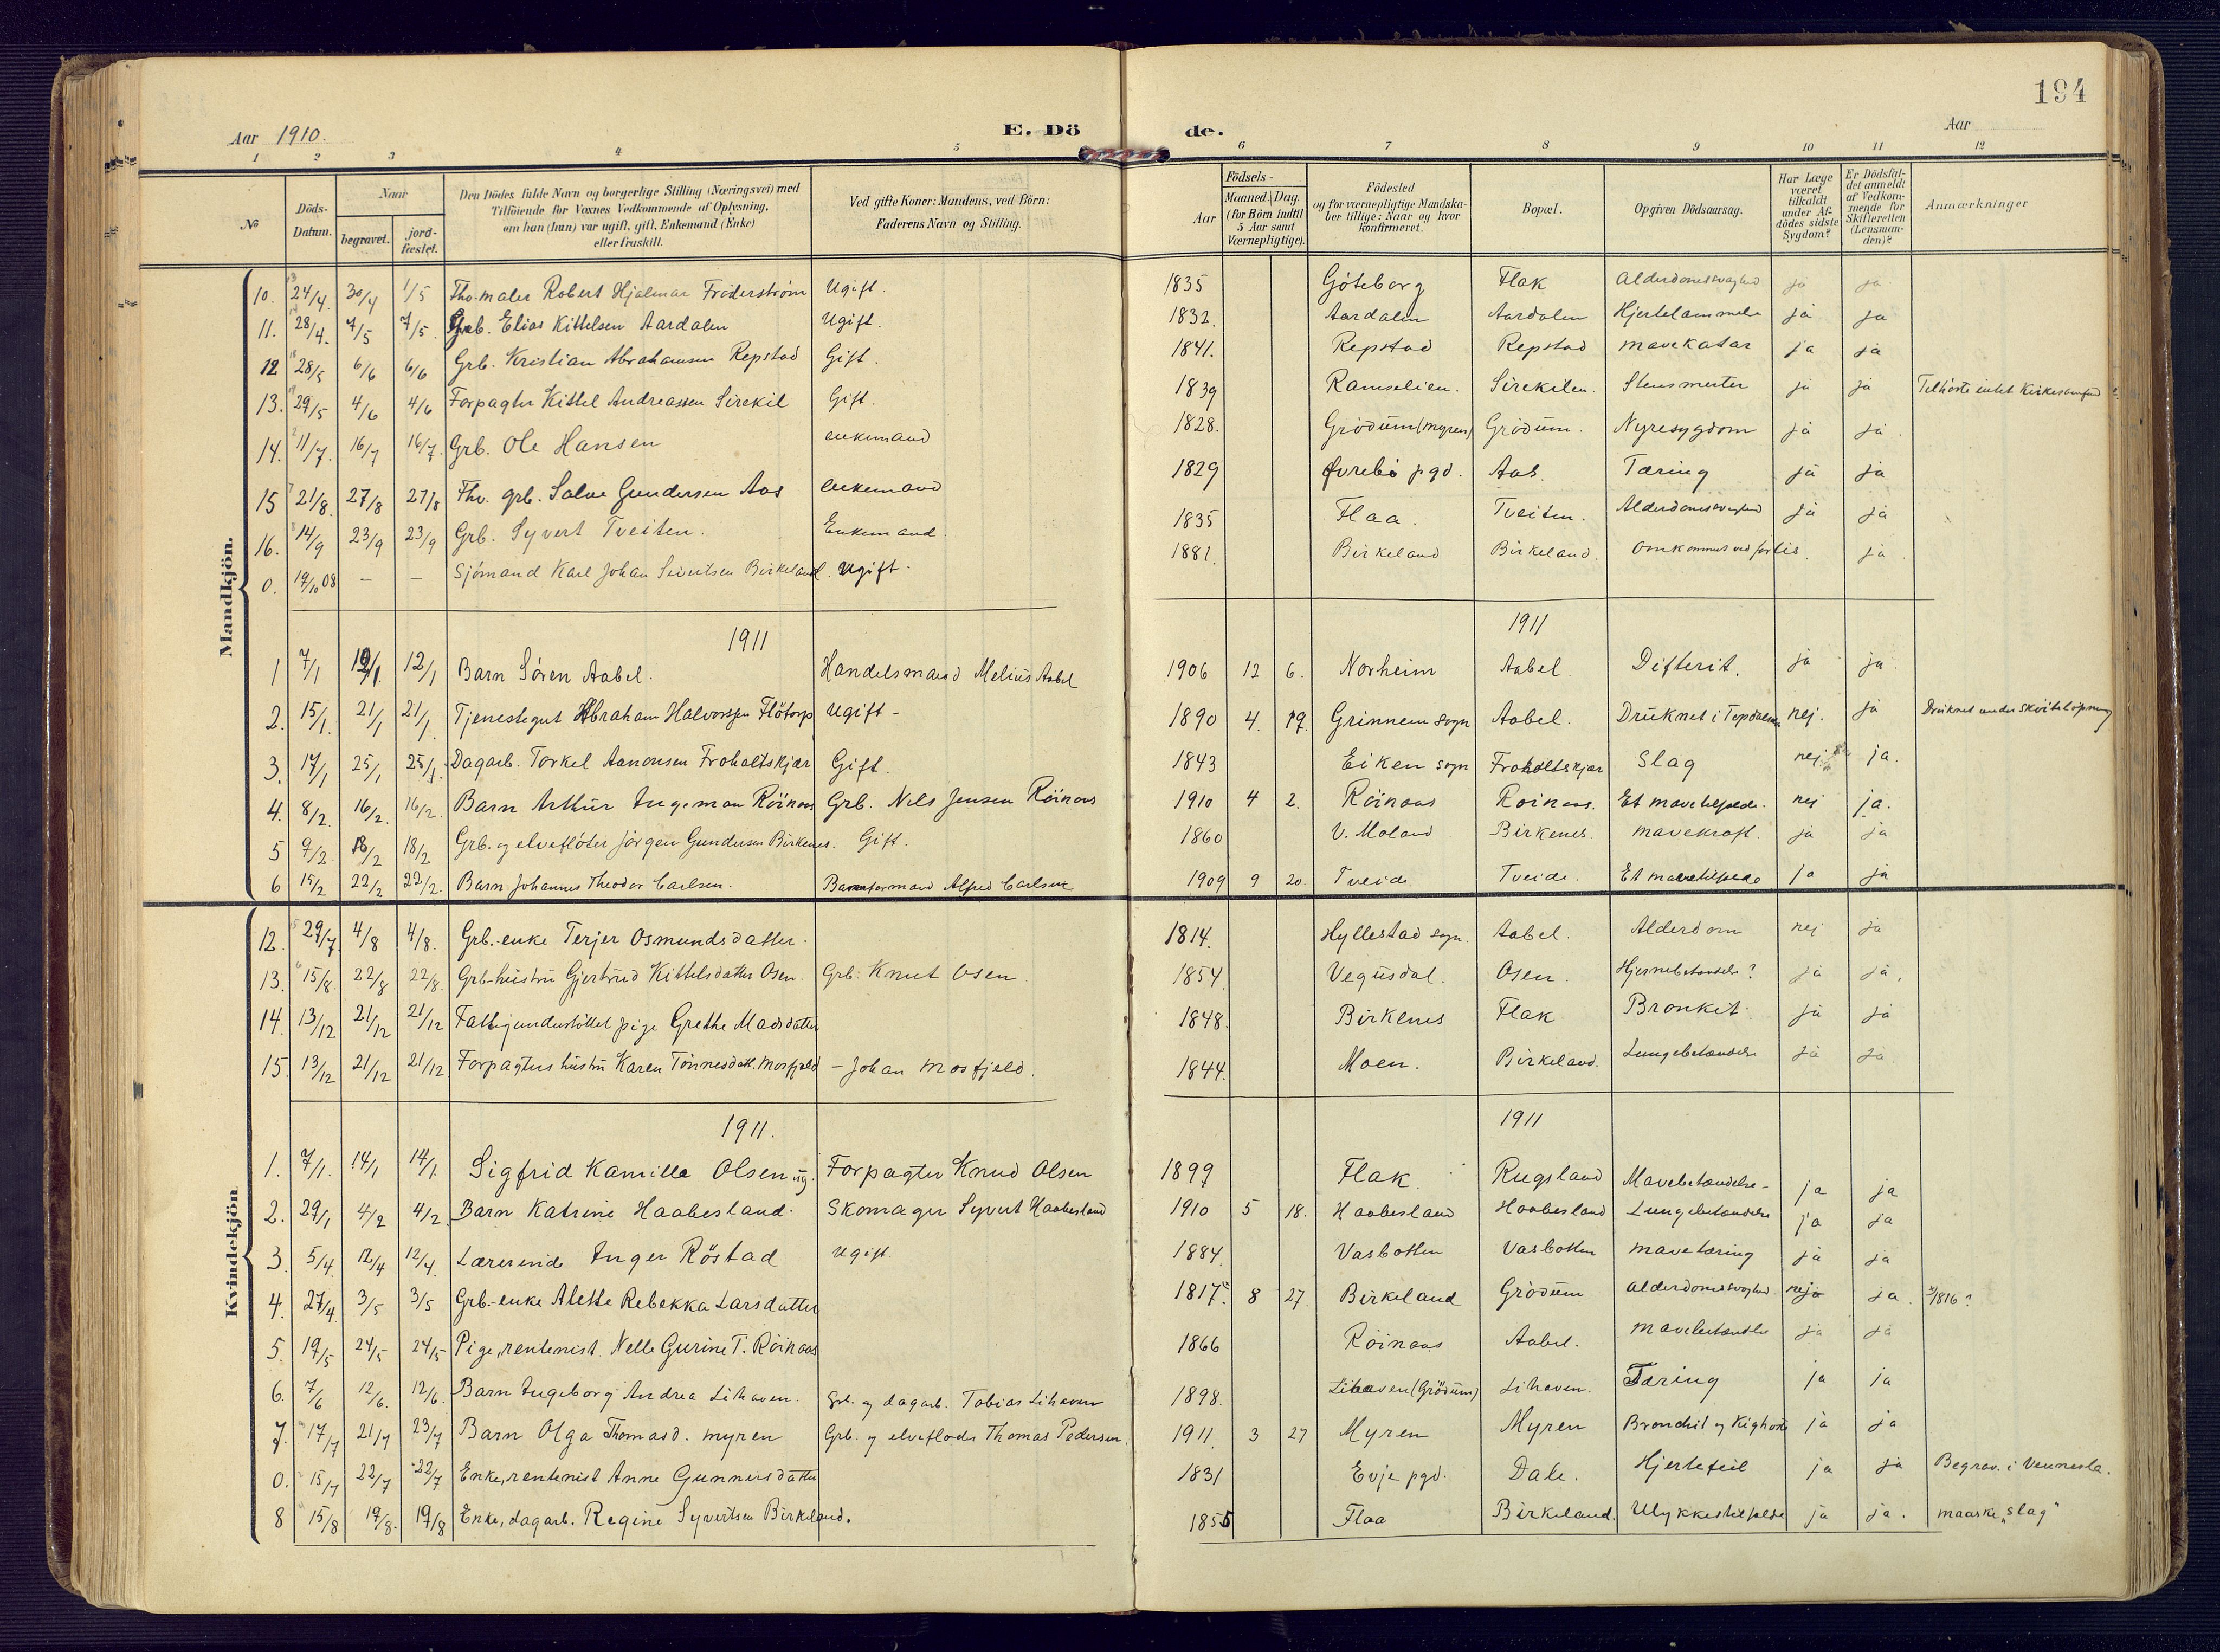 194
Aar 1910. E. Döde. Aar
1 2 3 4 5 6 7 8 9 10 11 12
№ Döds-Datum. Naar begravet. jord-fæstet. Den Dödes fulde Navn og borgerlige Stilling (Næringsvei) med Tilföiende for Voxnes Vedkommende af Oplysning, om han (hun) var ugift, gift, Enkemand (Enke) eller fraskilt. Ved gifte Koner: Mandens, ved Börn: Faderens Navn og Stilling. Födsels- Aar Maaned. Dag. (for Börn indtil 5 Aar samt Værnepligtige). Födested og for værnepligtige Mandskaber tillige: Naar og hvor konfirmeret. Bopæl. Opgiven Dödsaarsag. Har Læge været tilkaldt under Afdödes sidste Sygdom? Er Dödsfaldet anmeldt af Vedkommende for Skifteretten (Lensmanden)? Anmærkninger
Mandkjön.
10. 24/4. 30/4 1/5 Fhv. maler Robert Hjalmar Friderström Ugift. 1835 Göteborg Flak Alderdomssvaghed ja ja.
11. 28/4. 7/5 7/5. Grb. Elias Kittelsen Aardalen Ugift. 1832. Aardalen Aardalen Hjertelammelse ja ja
12 28/5 6/6 6/6 Grb. Kristian Abrahamsen Repstad Gift. 1841. Repstad Repstad mavekatar ja ja
13. 29/5 4/6 4/6 Forpagter Kittel Andreassen Sirekil Gift. 1839 Ramselien. Sirekilen. Stensmerter ja ja Tilhörte intet Kirkesamfund
14. 11/7. 16/7 16/7. Grb. Ole Hansen enkemand 1828. Grödum (myren) Grödum. Nyresygdom ja ja
15 21/8. 27/8 27/8 Fhv. grb. Salve Gundersen Aas enkemand 1829 Øvrebö pgd. Aas. Tæring ja ja
16. 14/9 23/9 23/9 Grb. Syvert Tveiten. Enkemand. 1835 Flaa. Tveiten. Alderdomssvaghed ja ja
0. 19/10 08 – – Sjömand Karl Johan Sivertsen Birkeland. Ugift. 1881. Birkeland Birkeland. Omkommet ved forlis. ja
1911 1911
1 7/1 12/1 12/1 Barn Sören Aabel. Handelsmand Melius Aabel 1906 12 6. Norheim Aabel. Difterit. ja ja.
2. 15/1. 21/1 21/1. Tjenestegut Abraham Halvorssen Flötorp Ugift – 1890 4. 19. Grinnem sogn Aabel. Druknet i Topdalselven nej. ja
3. 17/1 25/1 25/1. Dagarb. Torkel Aanonsen Froholtskjær Gift. 1843 Eiken sogn Froholtskjær Slag nej ja.
4. 8/2. 16/2. 16/2. Barn Arthur Ingeman Röinaas Grb. Nils Jensen Röinaas 1910 4 2. Röinaas Roinaas. Et mavetilfælde. nej ja.
5 9/2. 18/2 18/2 Grb. og elveflöter Jörgen Gundersen Birkenes. Gift. 1860 V. Moland Birkenes. mavekræft. ja ja
6 15/2 22/2 22/2. Barn Johannes Theodor Carlsen. Baneformand Alfred Carlsen 1909 9 20. Tveide Tveide. Et mavetilfælde ja ja
Kvindekjön
12. 29/7. 4/8 4/8. Grb.-enke Terjer Osmundsdatter. 1814. Hyllestad sogn. Aabel. Alderdom nej ja
13. 15/8. 22/8 22/8. Grb-hustru Gjertrud Kittelsdatter Osen. Grb. Knut Osen 1854. Vegusdal. Osen. Hjernebetændelse? ja ja.
14. 13/12 21/12 21/12 Fattigunderstöttet pige Grethe Madsdatter 1848. Birkenes Flak Bronkit. ja ja
15. 13/12 21/12 21/12 Forpagters hustru Karen Tönnesdatt. Mosfjeld – Johan Mosfjeld. 1844. Moen. Birkeland. Lungebetændelse ja ja
1911. 1911
1. 7/1. 14/1 14/1. Sigfrid Kamilla Olsen ug. Forpagter Knud Olsen 1899 Flak. Rugsland Mavebetændelse – ja ja
2. 29/1 4/2 4/2. Barn Katrine Haabesland. Skomager Syvert Haabesland 1910 5 18. Haabesland Haabesland Lungebetændelse ja ja
3. 5/4. 12/4 12/4. Lærerinde Inger Röstad Ugift. 1884. Vasbotten Vasbotten mavetæring ja ja
4. 27/4. 3/5 3/5 Grb.-enke Alette Rebekka Larsdatter 1817. 8 27. Birkeland Grödum Alderdomssvaghed neja ja. 1816?
5. 19/5 24/5 24/5 Pige, rentenist. Nelle Gurine T. Röinaas 1866 Röinaas Aabel. mavebetændelse ja ja
6. 7/6 12/6. 12/6. Barn Ingeborg Andrea Lihaven. Grb. og dagarb. Tobias Lihaven 1898. Lihaven (Grödum) Lihaven. Tæring ja ja
7. 17/7 21/7 23/7 Barn Olga Thomasd. myren Grb. og elveflöder Thomas Pedersen. 1911. 3 27 Myren Myren Bronchit og Kighoste ja ja
0. 15/7 22/7 22/7 Enke, rentenist Anne Gunnersdatter 1831 Evje pgd. Dale. Hjertefeil ja ja Begrav. i Vennesla.
8 15/8 19/8. 19/8 Enke, dagarb. Regine Syvertsen Birkeland. 1855 Flaa Birkeland. Ulykkestilfælde ja ja. maaske „slag"